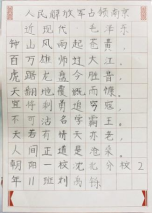 人民解放军占领南京
近现代 毛泽东
钟山风雨起苍黄，
百万雄师过大江。
虎踞龙盘今胜昔，
天翻地覆慨而慷。
宜将剩勇追穷寇，
不可沽名学霸王。
天若有情天亦老，
人间正道是沧桑。
朝阳一校 2
年11班刘